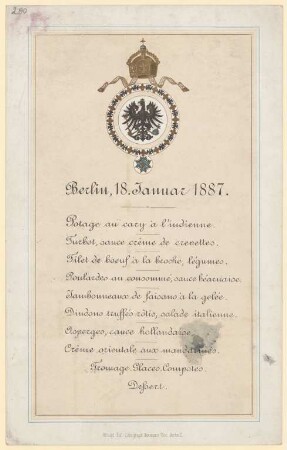 290
Berlin, 18. Januar 1887.
Potage au cary à l'indienne.
Turbot, sauce crème de crevettes.
Filet de boeuf à la broche, légumes.
Poulardes au consommé, sauce béarnaise.
Jambonneaux de faisans à la gelée.
Dindons truffés rôtis, salade italienne.
Asperges, sauce hollandaise.
Crème orientale aux mandarines.
Fromage. Glaces. Compotes.
Dessert.